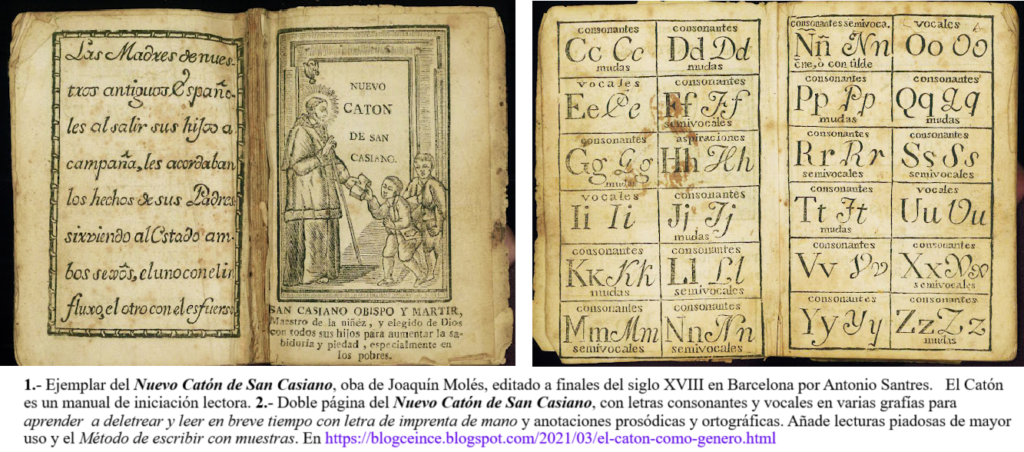 Las Madres de nues-
tros antiguos Españo-
les al salir sus hijos a
campaña, les acordaban
los hechos de sus Padres
sirviendo al Estado am-
bos sexôs, el uno con el in
fluxo, el otro con el esfuerso
NUEVO
CATON
DE SAN
CASIANO.
SAN CASIANO OBISPO Y MARTIR,
Maestro de la niñéz , y elegido de Dios
con todos sus hijos para aumentar la sa-
biduría y piedad , especialmente en
los pobres.
consonantes
Cc Cc
mudas
consonantes
Dd Dd
mudas
vocales
Ee Ee
consonantes
Ff Ff
semivocales
consonantes
Gg Gg
mudas
aspiraciones
Hh Hh
vocales
Ii Ii
consonantes
Jj Jj
mudas
consonantes
Kk Kk
mudas
consonantes
Ll Ll
semivocales
consonantes
Mm Mm
semivocales
consonantes
Nn Nn
semivocales
consonantes semivoca.
Ññ Ñn
ẽne, ò con tilde
vocales
Oo Oo
consonantes
Pp Pp
mudas
consonantes
Qq Qq
mudas
consonantes
Rr Rr
semivocales
consonantes
Ss Ss
semivocales
consonantes
Tt Tt
mudas
vocales
Uu Uu
consonantes
Vv Vv
consonantes
Xx Xx
semivocales
consonantes
Yy Yy
consonantes
Zz Zz
mudas
1.- Ejemplar del Nuevo Catón de San Casiano, oba de Joaquín Molés, editado a finales del siglo XVIII en Barcelona por Antonio Santres. El Catón
es un manual de iniciación lectora. 2.- Doble página del Nuevo Catón de San Casiano, con letras consonantes y vocales en varias grafías para
aprender a deletrear y leer en breve tiempo con letra de imprenta de mano y anotaciones prosódicas y ortográficas. Añade lecturas piadosas de mayor
uso y el Método de escribir con muestras. En https://blogceince.blogspot.com/2021/03/el-caton-como-genero.html